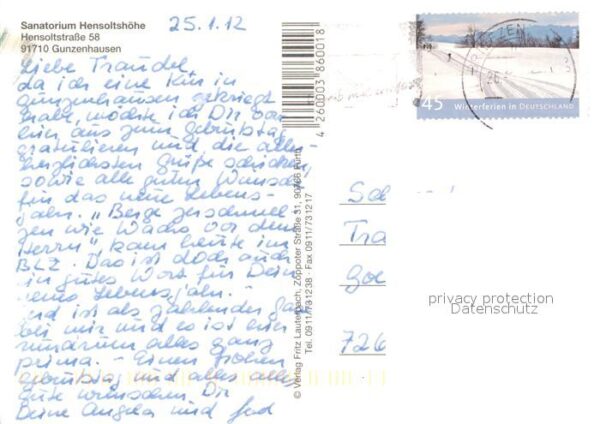 Sanatorium Hensoltshöhe
Hensoltstraße 58
91710 Gunzenhausen
25.1.12
Liebe Traudel,
da ich eine Kur in
Gunzenhausen gekriegt
habe, möchte ich Dir von
hier aus zum Geburtstag
gratulieren und die aller-
herzlichsten Grüße schicken,
sowie alle guten Wünsche
für das neue Lebens-
jahr. „Berge zerschmel-
zen wie Wachs vor dem
Herrn" kam heute im
BLZ. Das ist doch auch
ein gutes Wort für Dein
neues Lebensjahr.
und ist als zahlender Gast
bei mir und es ist hier
rundrum alles ganz
prima. - Einen frohen
Geburtstag und alles alles
Gute wünschen Dir
Deine Angela und
4 260003 860018
© Verlag Fritz Lauterbach, Zoppoter Straße 31, 90766 Fürth
Tel. 0911/731238 · Fax 0911/731217
45 Winterferien in DEUTSCHLAND
Sc
Tra
Goe
726
privacy protection
Datenschutz